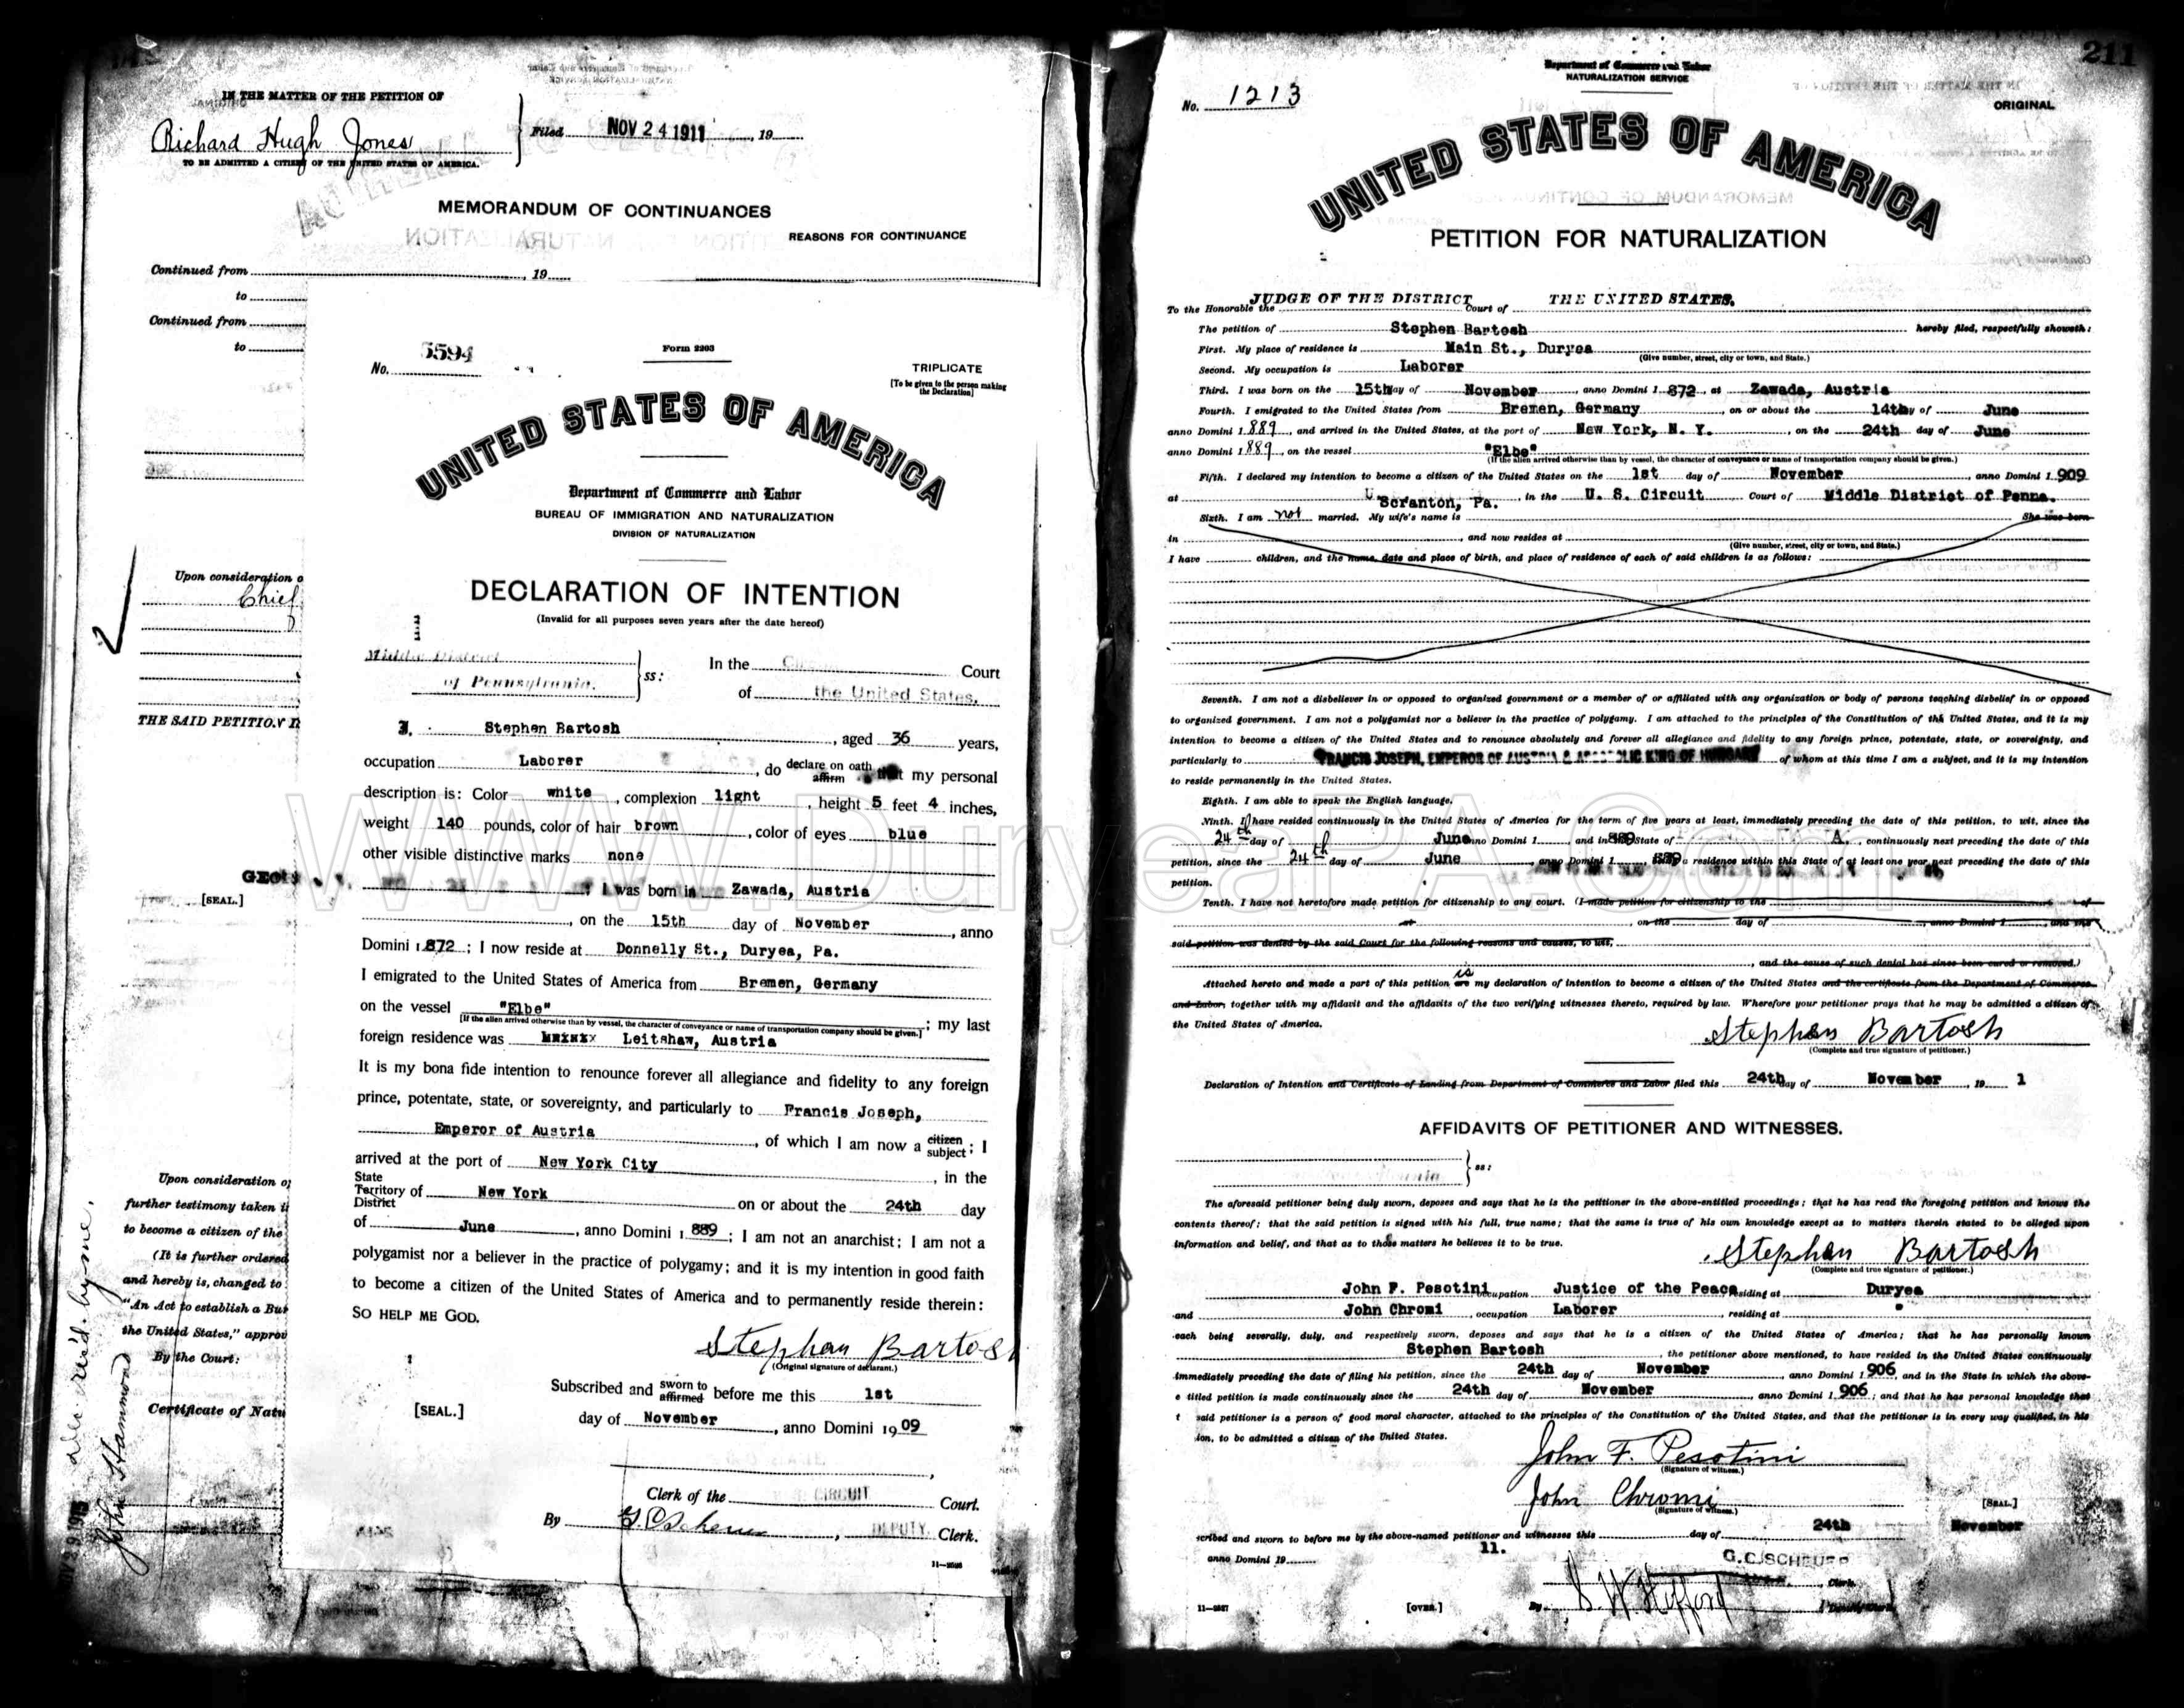 IN THE MATTER OF THE PETITION OF
Richard Hugh Jones
TO BE ADMITTED A CITIZEN OF THE UNITED STATES OF AMERICA.
Filed NOV 24 1911, 19
MEMORANDUM OF CONTINUANCES
REASONS FOR CONTINUANCE
Continued from , 19
to
Continued from
to
Upon consideration o
Chief
THE SAID PETITION I
[SEAL.]
Upon consideration of
further testimony taken
to become a citizen of the
(It is further ordered
and hereby is, changed to
"An Act to establish a Bu
the United States," approv
By the Court:
Certificate of Natu
rec'd by me.
John Hammond
No. 5594
Form 2203
TRIPLICATE
[To be given to the person making
the Declaration]
UNITED STATES OF AMERICA
Department of Commerce and Labor
BUREAU OF IMMIGRATION AND NATURALIZATION
DIVISION OF NATURALIZATION
DECLARATION OF INTENTION
(Invalid for all purposes seven years after the date hereof)
Middle District
of Pennsylvania. ss:
In the Court
of the United States.
I, Stephen Bartosh, aged 36 years,
occupation Laborer, do declare on oath affirm that my personal
description is: Color white, complexion light, height 5 feet 4 inches,
weight 140 pounds, color of hair brown, color of eyes blue
other visible distinctive marks none
; I was born in Zawada, Austria
, on the 15th day of November, anno
Domini 1 872; I now reside at Donnelly St., Duryea, Pa.
I emigrated to the United States of America from Bremen, Germany
on the vessel "Elbe"; my last
[If the alien arrived otherwise than by vessel, the character of conveyance or name of transportation company should be given.]
foreign residence was Leitshaw, Austria
It is my bona fide intention to renounce forever all allegiance and fidelity to any foreign
prince, potentate, state, or sovereignty, and particularly to Francis Joseph,
Emperor of Austria, of which I am now a citizen subject; I
arrived at the port of New York City, in the
State Territory District of New York on or about the 24th day
of June, anno Domini 1 889; I am not an anarchist; I am not a
polygamist nor a believer in the practice of polygamy; and it is my intention in good faith
to become a citizen of the United States of America and to permanently reside therein:
SO HELP ME GOD.
Stephan Bartosh
(Original signature of declarant.)
Subscribed and sworn to affirmed before me this 1st
[SEAL.]
day of November, anno Domini 19 09
Clerk of the CIRCUIT Court.
By , DEPUTY Clerk.
211
Department of Commerce and Labor
NATURALIZATION SERVICE
No. 1213
ORIGINAL
UNITED STATES OF AMERICA
PETITION FOR NATURALIZATION
To the Honorable the JUDGE OF THE DISTRICT Court of THE UNITED STATES.
The petition of Stephen Bartosh hereby filed, respectfully showeth:
First. My place of residence is Main St., Duryea
(Give number, street, city or town, and State.)
Second. My occupation is Laborer
Third. I was born on the 15th day of November, anno Domini 1 872, at Zawada, Austria
Fourth. I emigrated to the United States from Bremen, Germany, on or about the 14th day of June
anno Domini 1 889, and arrived in the United States, at the port of New York, N. Y., on the 24th day of June
anno Domini 1 889, on the vessel "Elbe"
(If the alien arrived otherwise than by vessel, the character of conveyance or name of transportation company should be given.)
Fifth. I declared my intention to become a citizen of the United States on the 1st day of November, anno Domini 1 909
at Scranton, Pa., in the U. S. Circuit Court of Middle District of Penna.
Sixth. I am not married. My wife's name is She was born
in , and now resides at
(Give number, street, city or town, and State.)
I have children, and the name, date and place of birth, and place of residence of each of said children is as follows:
Seventh. I am not a disbeliever in or opposed to organized government or a member of or affiliated with any organization or body of persons teaching disbelief in or opposed
to organized government. I am not a polygamist nor a believer in the practice of polygamy. I am attached to the principles of the Constitution of the United States, and it is my
intention to become a citizen of the United States and to renounce absolutely and forever all allegiance and fidelity to any foreign prince, potentate, state, or sovereignty, and
particularly to FRANCIS JOSEPH, EMPEROR OF AUSTRIA & APOSTOLIC KING OF HUNGARY of whom at this time I am a subject, and it is my intention
to reside permanently in the United States.
Eighth. I am able to speak the English language.
Ninth. I have resided continuously in the United States of America for the term of five years at least, immediately preceding the date of this petition, to wit, since the
24th day of June anno Domini 1 889, and in State of , continuously next preceding the date of this
petition, since the 24th day of June, anno Domini 1 889, a residence within this State of at least one year next preceding the date of this
petition.
Tenth. I have not heretofore made petition for citizenship to any court. (I made petition for citizenship to the of
at , on the day of , anno Domini 1 , and the
said petition was denied by the said Court for the following reasons and causes, to wit,
, and the cause of such denial has since been cured or removed.)
Attached hereto and made a part of this petition are is my declaration of intention to become a citizen of the United States and the certificate from the Department of Commerce
and Labor, together with my affidavit and the affidavits of the two verifying witnesses thereto, required by law. Wherefore your petitioner prays that he may be admitted a citizen of
the United States of America.
Stephan Bartosh
(Complete and true signature of petitioner.)
Declaration of Intention and Certificate of Landing from Department of Commerce and Labor filed this 24th day of November, 19 1
AFFIDAVITS OF PETITIONER AND WITNESSES.
ss:
The aforesaid petitioner being duly sworn, deposes and says that he is the petitioner in the above-entitled proceedings; that he has read the foregoing petition and knows the
contents thereof; that the said petition is signed with his full, true name; that the same is true of his own knowledge except as to matters therein stated to be alleged upon
information and belief, and that as to those matters he believes it to be true.
Stephan Bartosh
(Complete and true signature of petitioner.)
John F. Pesotini, occupation Justice of the Peace, residing at Duryea
and John Chromi, occupation Laborer, residing at "
each being severally, duly, and respectively sworn, deposes and says that he is a citizen of the United States of America; that he has personally known
Stephen Bartosh, the petitioner above mentioned, to have resided in the United States continuously
immediately preceding the date of filing his petition, since the 24th day of November, anno Domini 1 906, and in the State in which the above-
e titled petition is made continuously since the 24th day of November, anno Domini 1 906, and that he has personal knowledge that
t said petitioner is a person of good moral character, attached to the principles of the Constitution of the United States, and that the petitioner is in every way qualified, in his
ion, to be admitted a citizen of the United States.
John F. Pesotini
(Signature of witness.)
John Chromi
(Signature of witness.)
[SEAL.]
scribed and sworn to before me by the above-named petitioner and witnesses this 24th day of November
anno Domini 19 11.
G.C. SCHEUER
, Clerk.
By
11—2027
[OVER.]
WWW.DuryeaPA.Com